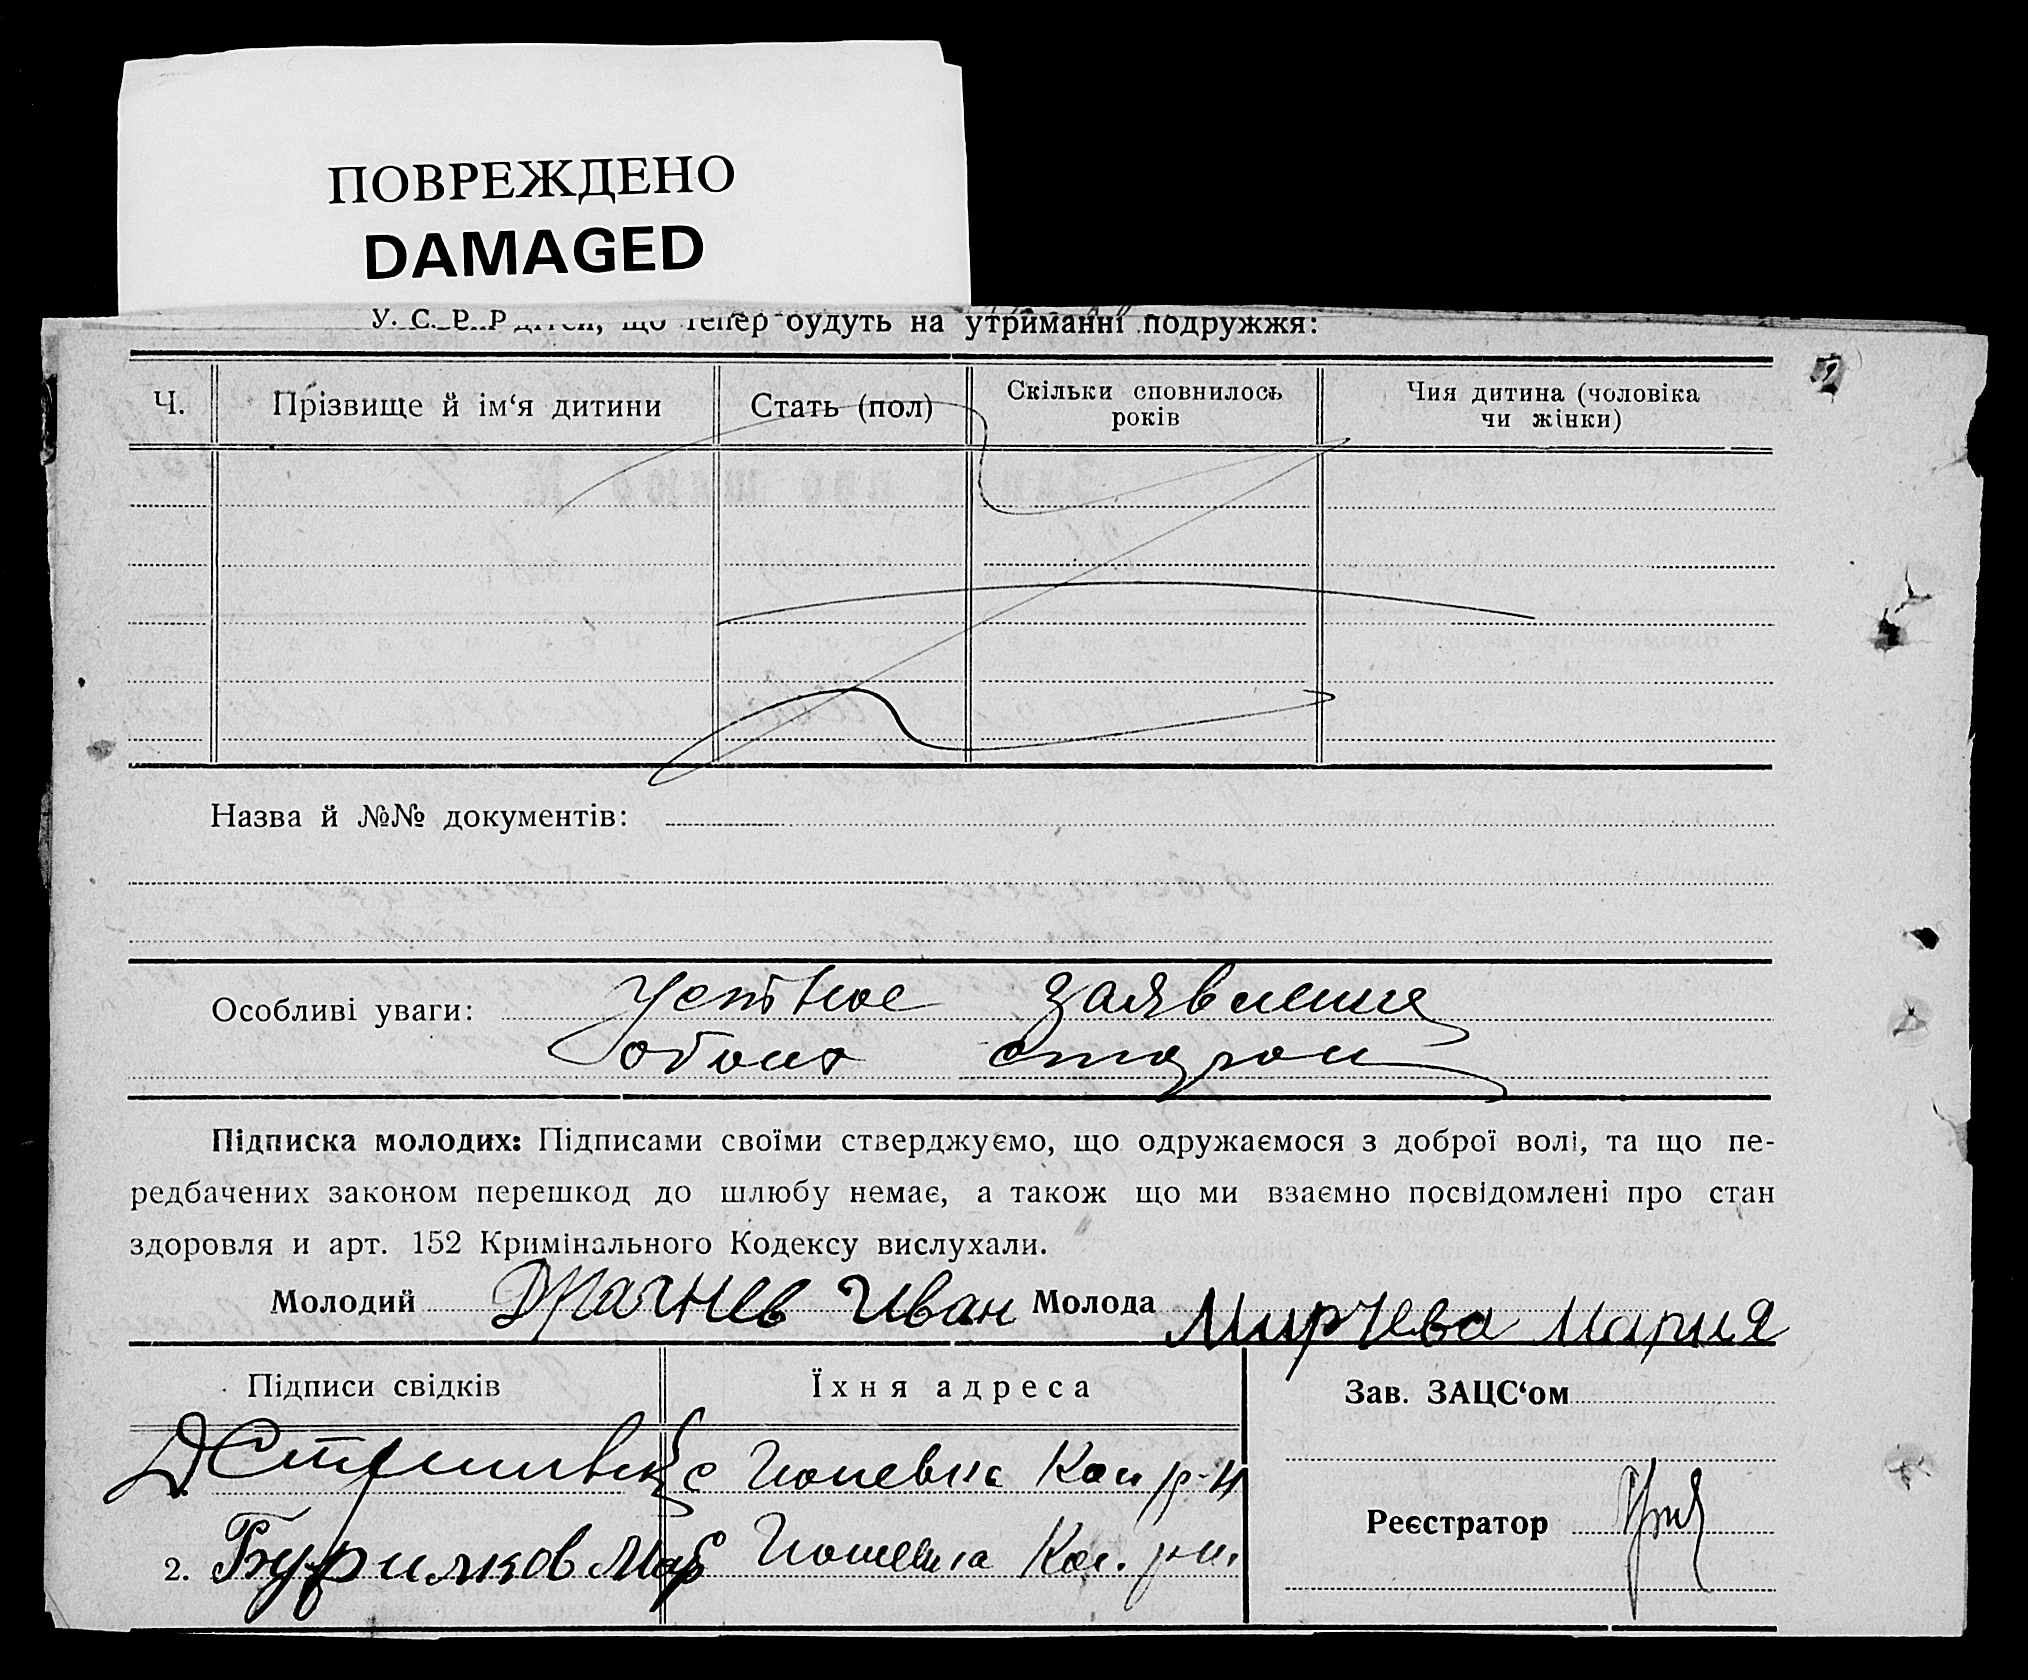 ПОВРЕЖДЕНО
DAMAGED
У. С. Р. Р. що тепер будуть на утриманні подружжя:
Ч. Прізвище й ім‘я дитини Стать (пол) Скільки сповнилось років Чия дитина (чоловіка чи жінки)
Назва й №№ документів:
Особливі уваги: Устное заявление
обоих сторон
Підписка молодих: Підписами своїми стверджуємо, що одружаємося з доброї волі, та що пе-
редбачених законом перешкод до шлюбу немає, а також що ми взаємно посвідомлені про стан
здоровля и арт. 152 Кримінального Кодексу вислухали.
Молодий Драгнев Иван Молода Мирчева Мария
Підписи свідків Їхня адреса Зав. ЗАЦС‘ом
с р-н
Реєстратор
2. р-н.